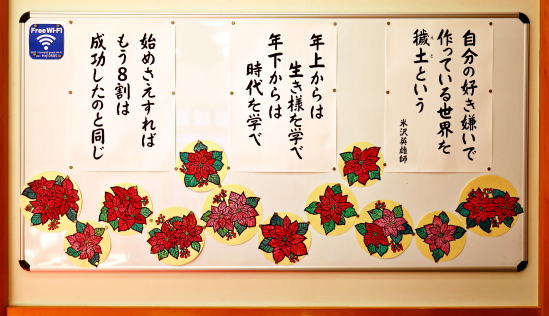 自分の好き嫌いで
作っている世界を
穢土という
えど
米沢英雄師
年上からは
生き様を学べ
年下からは
時代を学べ
始めさえすれば
もう8割は
成功したのと同じ
Free Wi-Fi